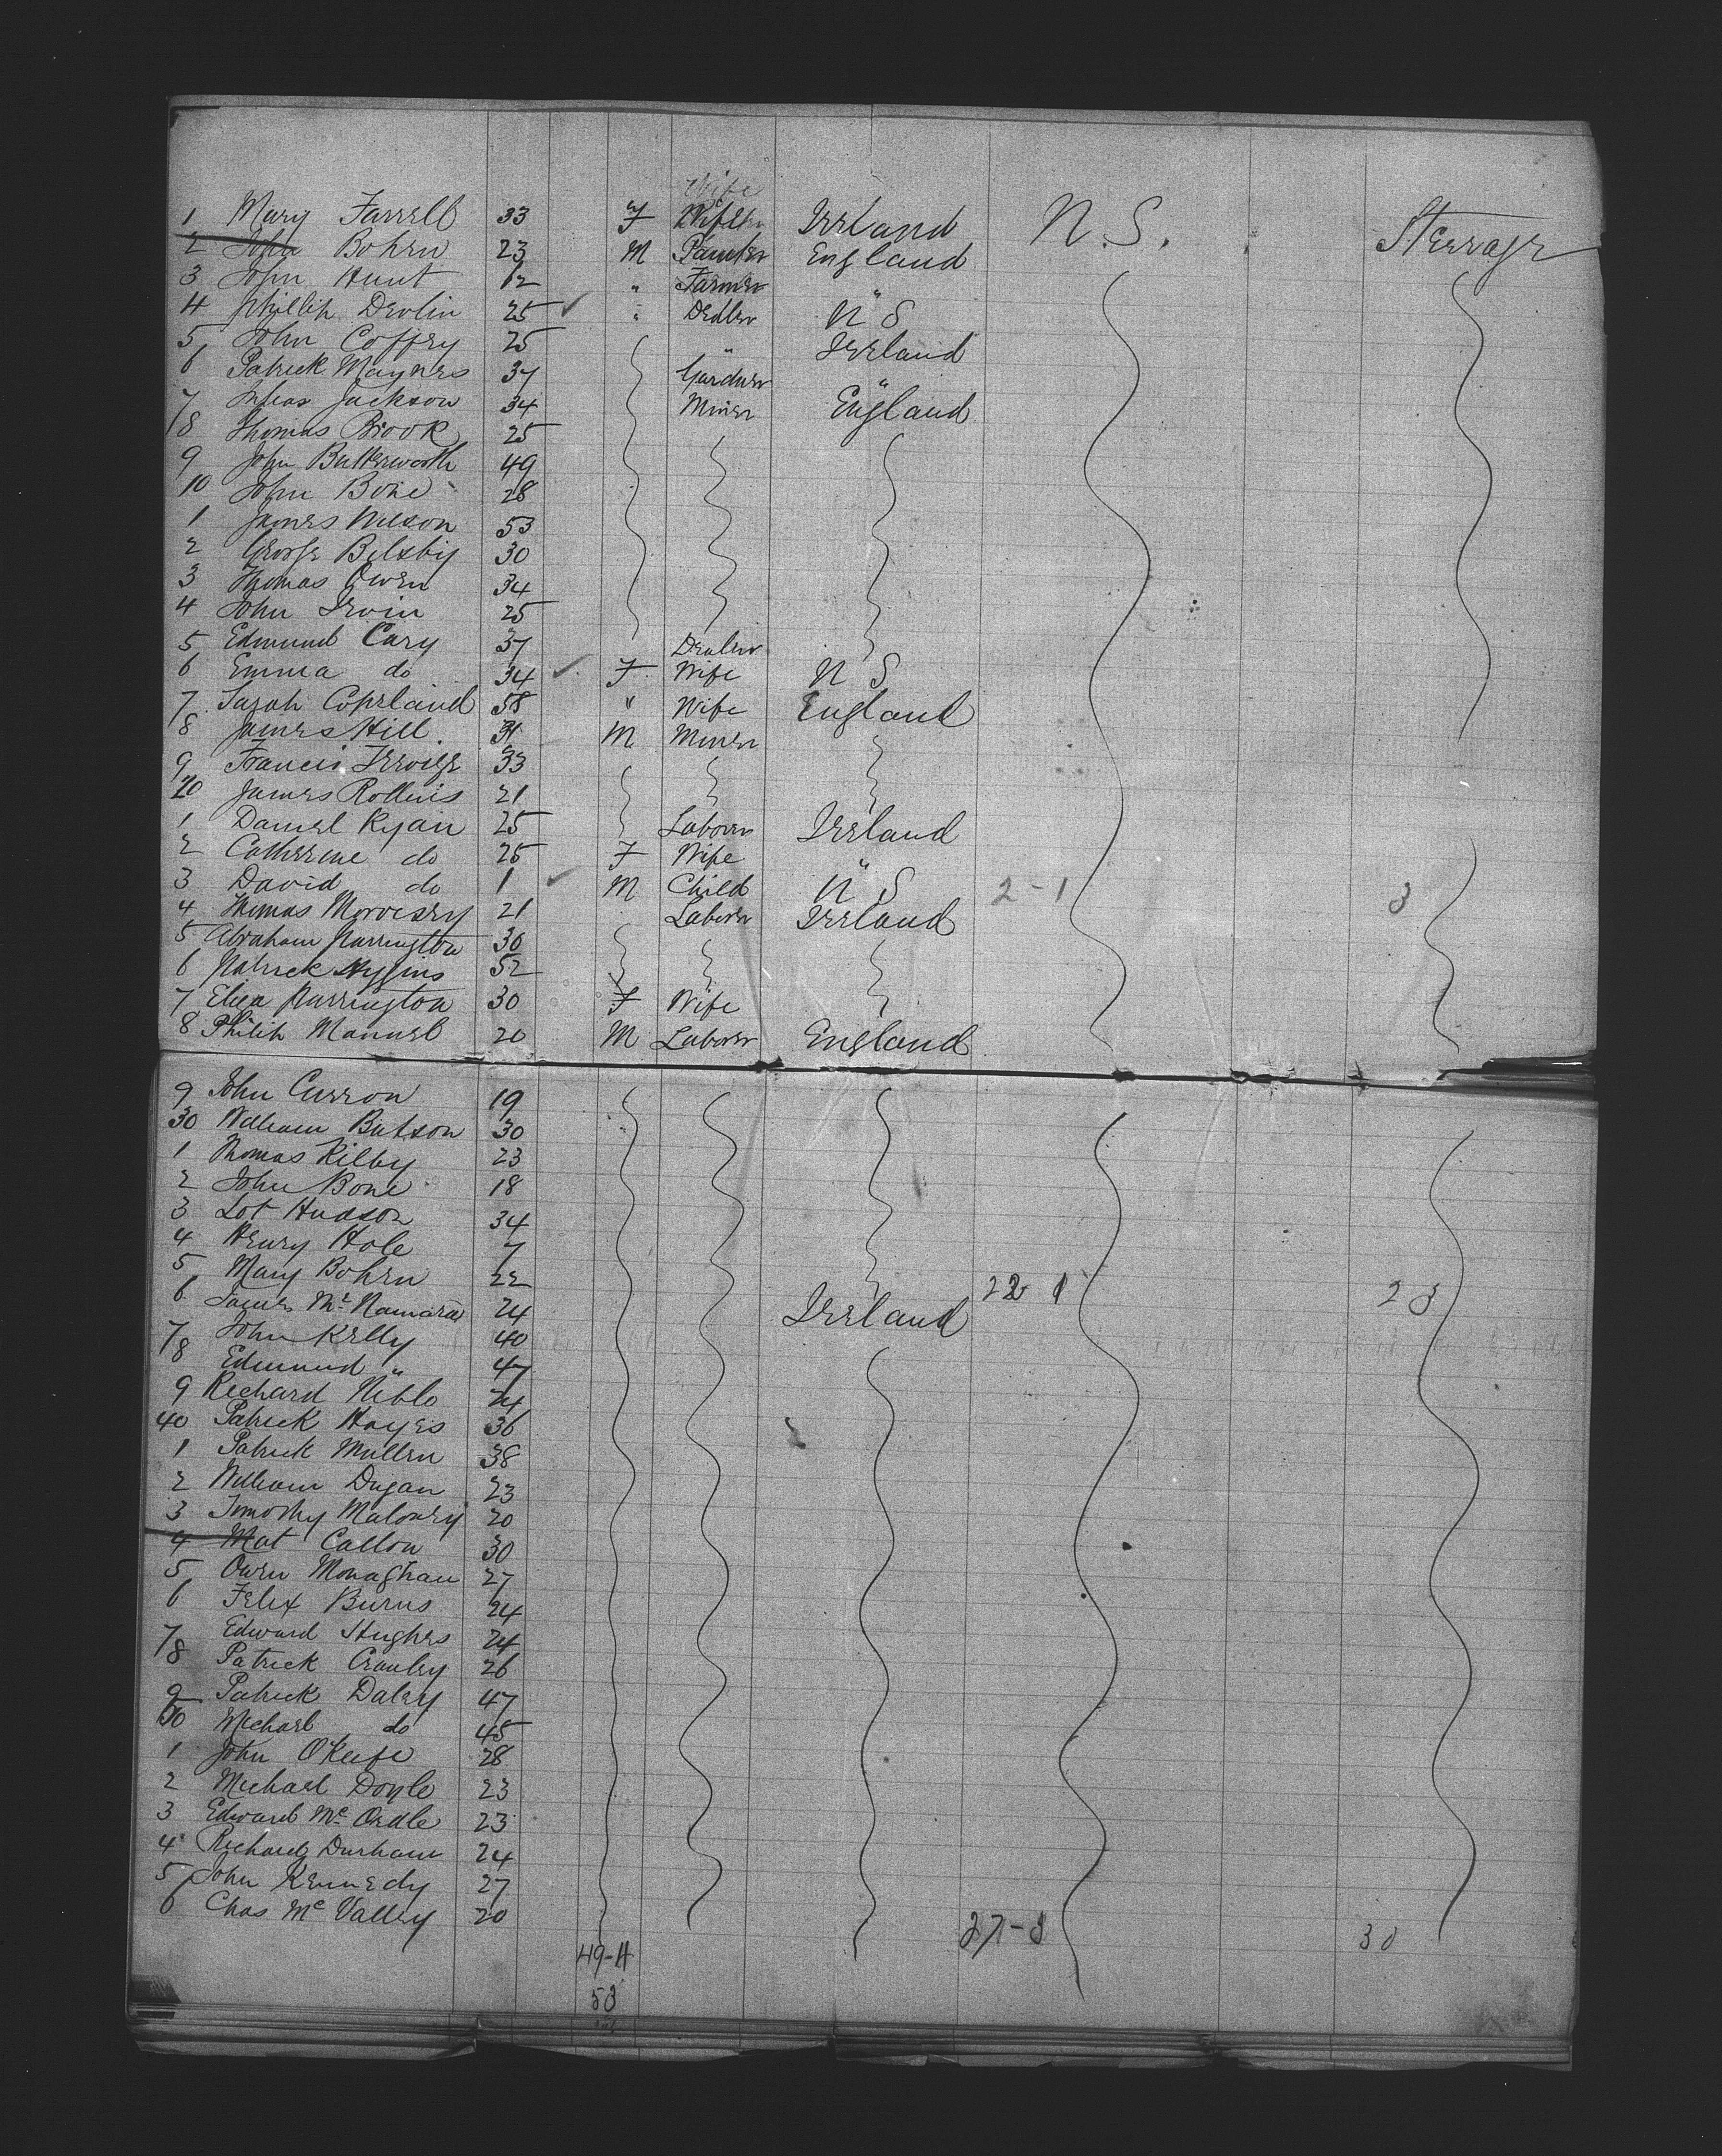 Wife
1 Mary Farrell 33 F Ireland N.S. Sterrage
2 John Bohen 23 M Painter England
3 John Hunt 12 " Farmer "
4 Phillip Devlin 25 " Dealer U S
5 John Coffey 25 " Ireland
6 Patrick Maynes 37 Gardner "
7 Jackson 34 Miner England
8 Thomas Brook 25
9 John Butterworth 49
10 John Bone 28
1 James Wilson 53
2 George Belsbij 30
3 Thomas Owen 34
4 John Irvin 25
5 Edmund Cary 37 Dealer
6 Emma do 34 F Wife U S
7 Sarah Copeland 58 " Wife England
8 James Hill 31 M Miner
9 Francis 33
20 James Rollins 21
1 Daniel Ryan 25 Laborer Ireland
2 Catherine do 25 F Wife "
3 David do 1 M Child U S 2-1 3
4 Thomas 21 Laborer Ireland
5 Abraham Parrington 30
6 Patrick Higgins 52
7 Eliza Parrington 30 F Wife
8 Philip Manuel 20 M Laborer England
9 John Curron 19
30 William Batson 30
1 Thomas Kilby 23
2 John Bone 18
3 Lot Hudson 34
4 Henry Hole 7
5 Mary Bohen 22 22 1 23
6 James McNamara 24 Ireland
7 John Kelly 40
8 Edmund " 47
9 Richard Niblo 24
40 Patrick Hayes 36
1 Patrick Mullen 38
2 William Dugan 23
3 Timothy Maloney 20
4 Mat Callon 30
5 Owen Monaghan 27
6 Felix Burns 24
7 Edward Hughes 24
8 Patrick Cranley 26
9 Patrick Daley 47
50 Michael do 45
1 John O'Keefe 28
2 Michael Doyle 23
3 Edward Mc Ardle 23
4 Richard Durham 24
5 John Kennedy 27
6 Chas Mc Valley 20 27-3 30
49-4
53